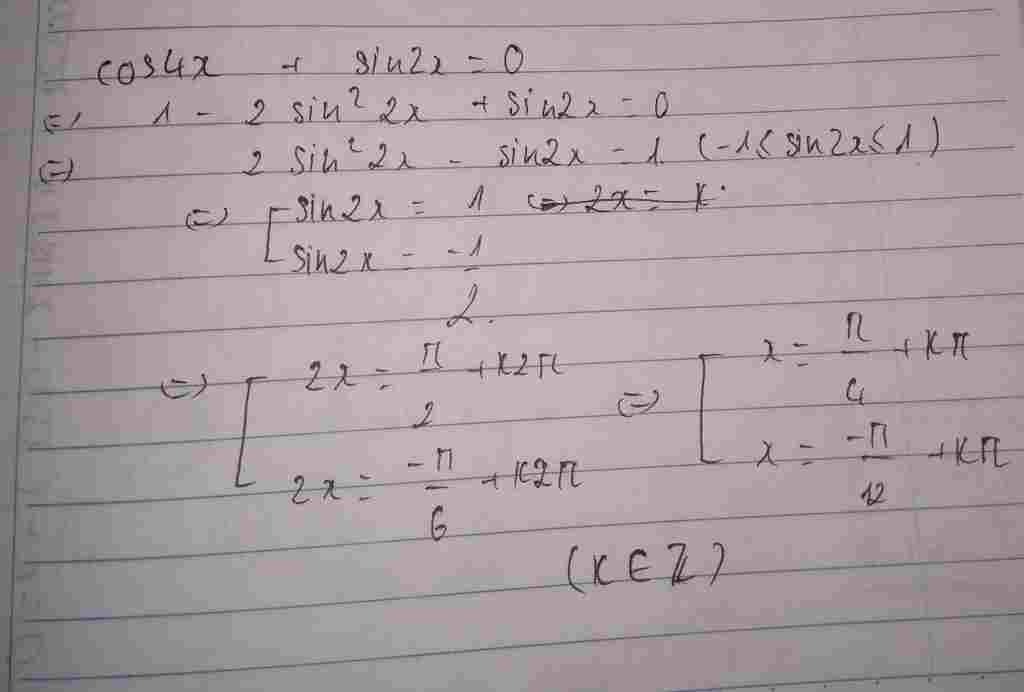 cos4x + sin2x = 0
⇔ 1 - 2 sin² 2x + sin2x = 0
⇔ 2 sin² 2x - sin2x = 1 (-1 ≤ sin2x ≤ 1)
⇔ [ sin2x = 1 ⇔ 2x = k
sin2x = -1/2.
⇔ [ 2x = π/2 + k2π ⇔ [ x = π/4 + kπ
2x = -π/6 + k2π x = -π/12 + kπ
(k ∈ Z)